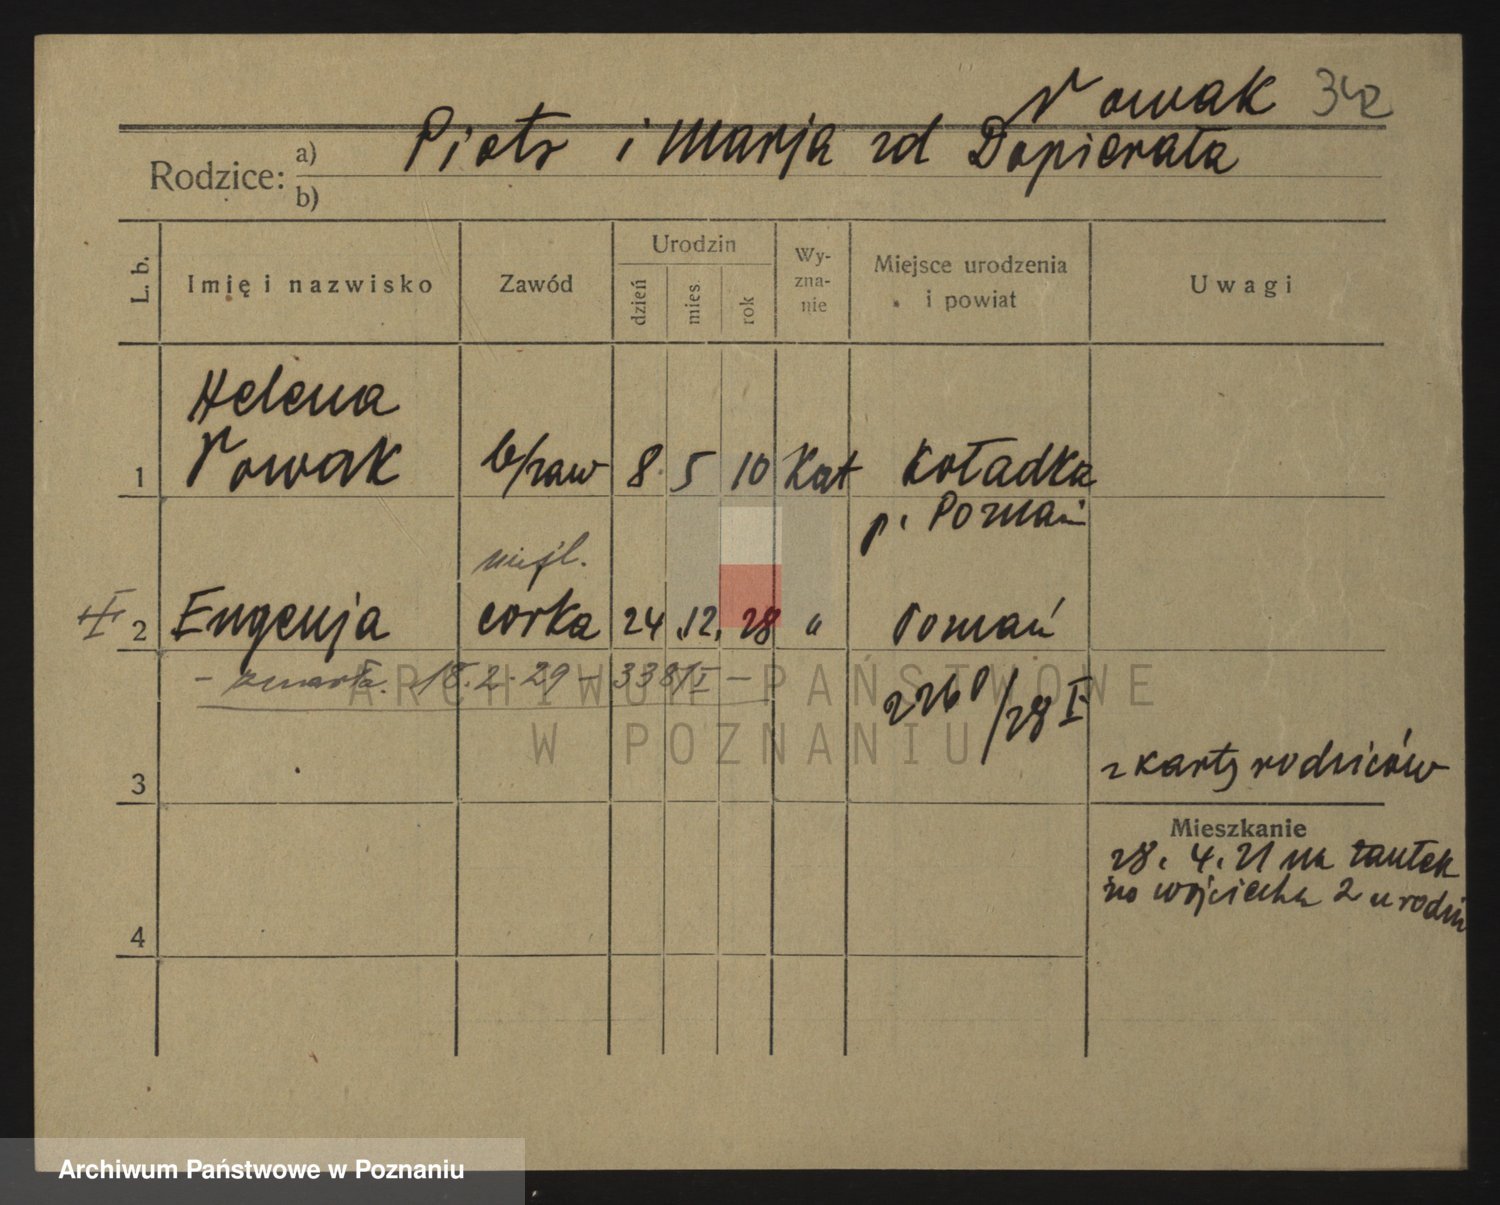 Nowak 342
Piotr i Marja zd Dopierała
Rodzice: a)
b)
L. b.
Imię i nazwisko
Zawód
Urodzin
dzień
mies.
rok
Wy-
zna-
nie
Miejsce urodzenia
i powiat
Uwagi
Helena
1 Nowak b/zaw 8. 5 10 Kat Koładka
p. Poznań
nieśl.
2 Eugenja córka 24 .12. 28 " Poznań
- zmarła. 18. 2. 29 - 338/I -
2260/28 I
3
z karty rodziców
Mieszkanie
28. 4. 21 na
Wojciecha 2 u rodzi
4
ARCHIWUM PAŃSTWOWE
W POZNANIU
Archiwum Państwowe w Poznaniu